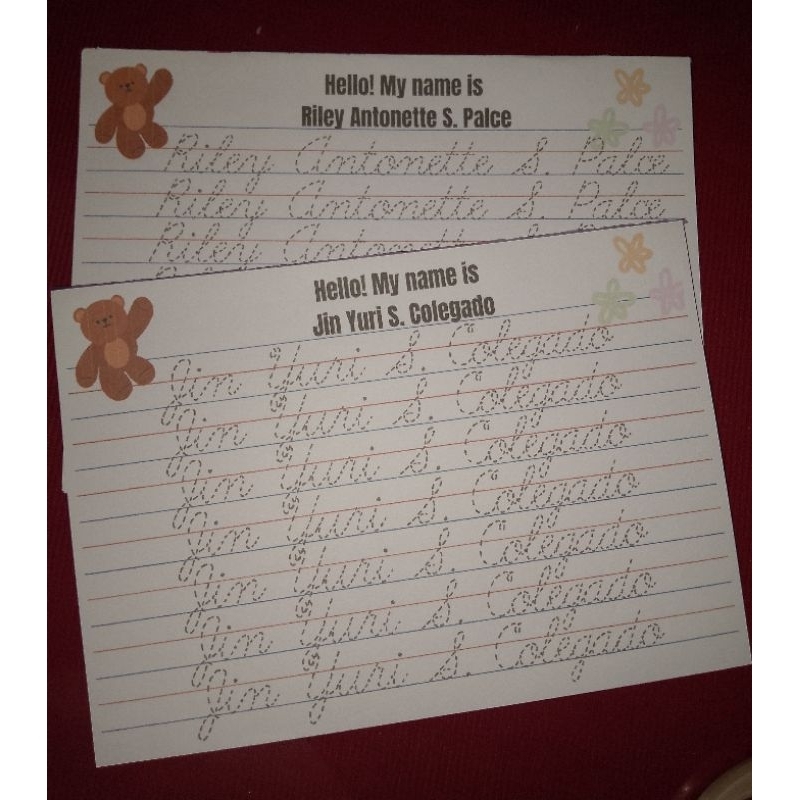 Hello! My name is
Riley Antonette S. Palce
Riley Antonette S. Palce
Riley Antonette S. Palce
Riley Antonette
Hello! My name is
Jin Yuri S. Colegado
Jin Yuri S. Colegado
Jin Yuri S. Colegado
Jin Yuri S. Colegado
Jin Yuri S. Colegado
Jin Yuri S. Colegado
Jin Yuri S. Colegado
Jin Yuri S. Colegado